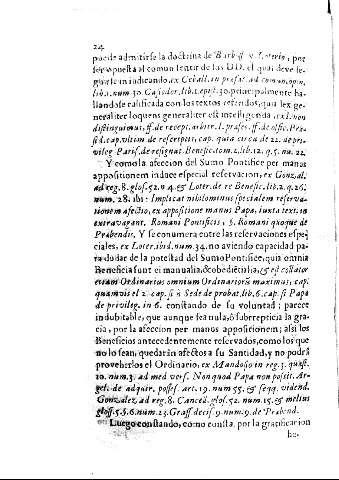 24
puede admitirse la doctrina de Barboss. y Loterio, por
ser opuesta al comun sentir de los DD. el qual deve se-
guirse in indicando, ex Cevall. in præfat. ad commun. opin.
lib. 1. num. 30. Casiodor. lib. 1. epist. 30. principalmente ha-
llandose calificada con los textos referidos, quia lex ge-
neraliter loquens generaliter est intelligenda,
distinguimus, ff. de recept. arbitr. l. præses. ff. de offic. Præ-
sid. cap. ultim. de rescriptis, cap. quia circa de 22. de pri-
vileg. Paris. de resignat. Beneficiorum 2. lib. 12. q. 5. nu. 22.
Y como la afeccion del Sumo Pontifice per manus
appositionem induce especial reservacion, ex Gonzal.
ad reg. 8. glos. 52. n. 4. & Loter. de re Benefic. lib. 2. q. 26.
num. 28. ibi: Implicat nihilominus specialem reserva-
tionem affectio, ex appositione manus Papæ, iuxta text. in
extravagant. Romani Pontificis, 5. Romani quoque de
Præbendis. Y se enumera entre las reservaciones espe-
ciales, ex Loter. ibid. num. 34. no aviendo capacidad pa-
ra dudar de la potestad del Sumo Pontifice, quia omnia
Beneficia sunt ei manualia, & obedientialia, & est collator
etiam Ordinarius omnium Ordinariorum maximus, cap.
quamvis el 2. cap. si à Sede de præbat. lib. 6. cap. si Papa
de privileg. in 6. constando de su voluntad; parece
indubitable, que aunque sea nula, ò subrepticia la gra-
cia, por la afeccion per manus appositionem; assi los
Beneficios antecedentemente reservados, como los que
no lo sean, quedaràn afectos a su Santidad, y no podrà
proveherlos el Ordinario, ex Mandosio in reg. 3. quæst.
10. num. 3. ad med. vers. Non quod Papa non possit. Ar-
gel. de adquir. posses. art. 19. num. 55. & seqq. vidend.
Gonzalez, ad reg. 8. Cancell. glos. 52. num. 15. & melius
glos. 5. §. 6. num. 23. Graff. decis. 9. num. 9. de Præbend.
Luego constando, como consta, por la gratificacion
he-